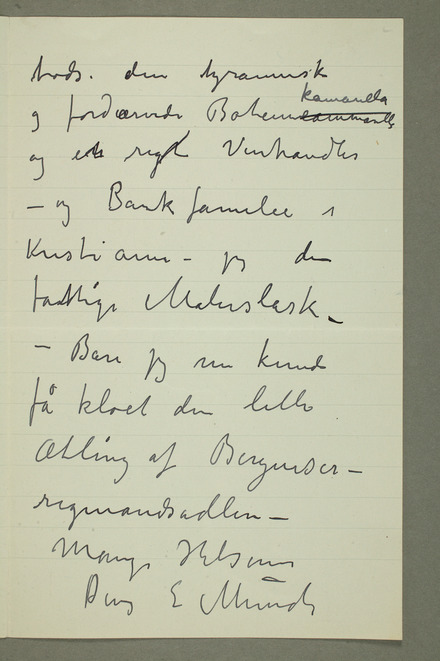 tods. den tyrannisk
og fordærvede Bohem kamarilla
og en rig Vinhandler
– og Bankfamilie i
Kristiania – jeg den
fattige Malerslask –
– Bare jeg nu kunde
få kloet den lille
Ætling af Bergenser –
rigmandsadlen –
Mange Hilsener
Din E Munch